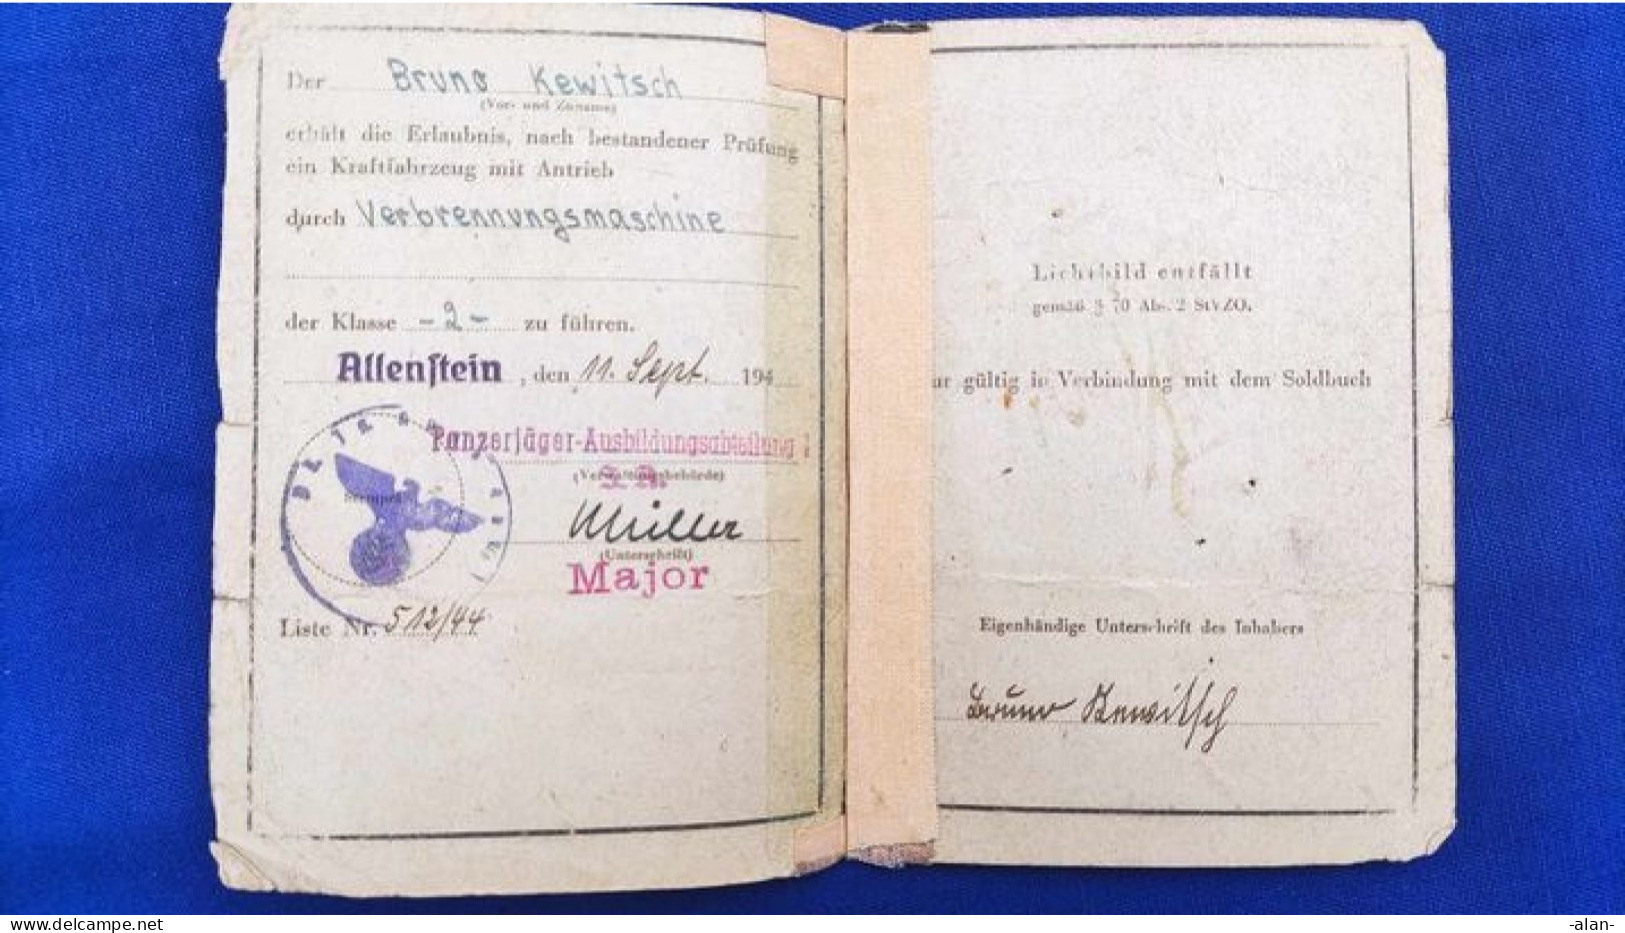 Der Bruno Kewitsch
(Vor- und Zuname)
erhält die Erlaubnis, nach bestandener Prüfung
ein Kraftfahrzeug mit Antrieb
durch Verbrennungsmaschine
der Klasse -2- zu führen.
Allenstein, den 11. Sept. 194
Panzerjäger-Ausbildungsabteilung
(Verwaltungsbehörde)
Stempel
Müller
(Unterschrift)
Major
Liste Nr. 512/44
Lichtbild entfällt
gemäß § 70 Abs. 2 StVZO.
gültig in Verbindung mit dem Soldbuch
Eigenhändige Unterschrift des Inhabers
Bruno Kewitsch
-alan-